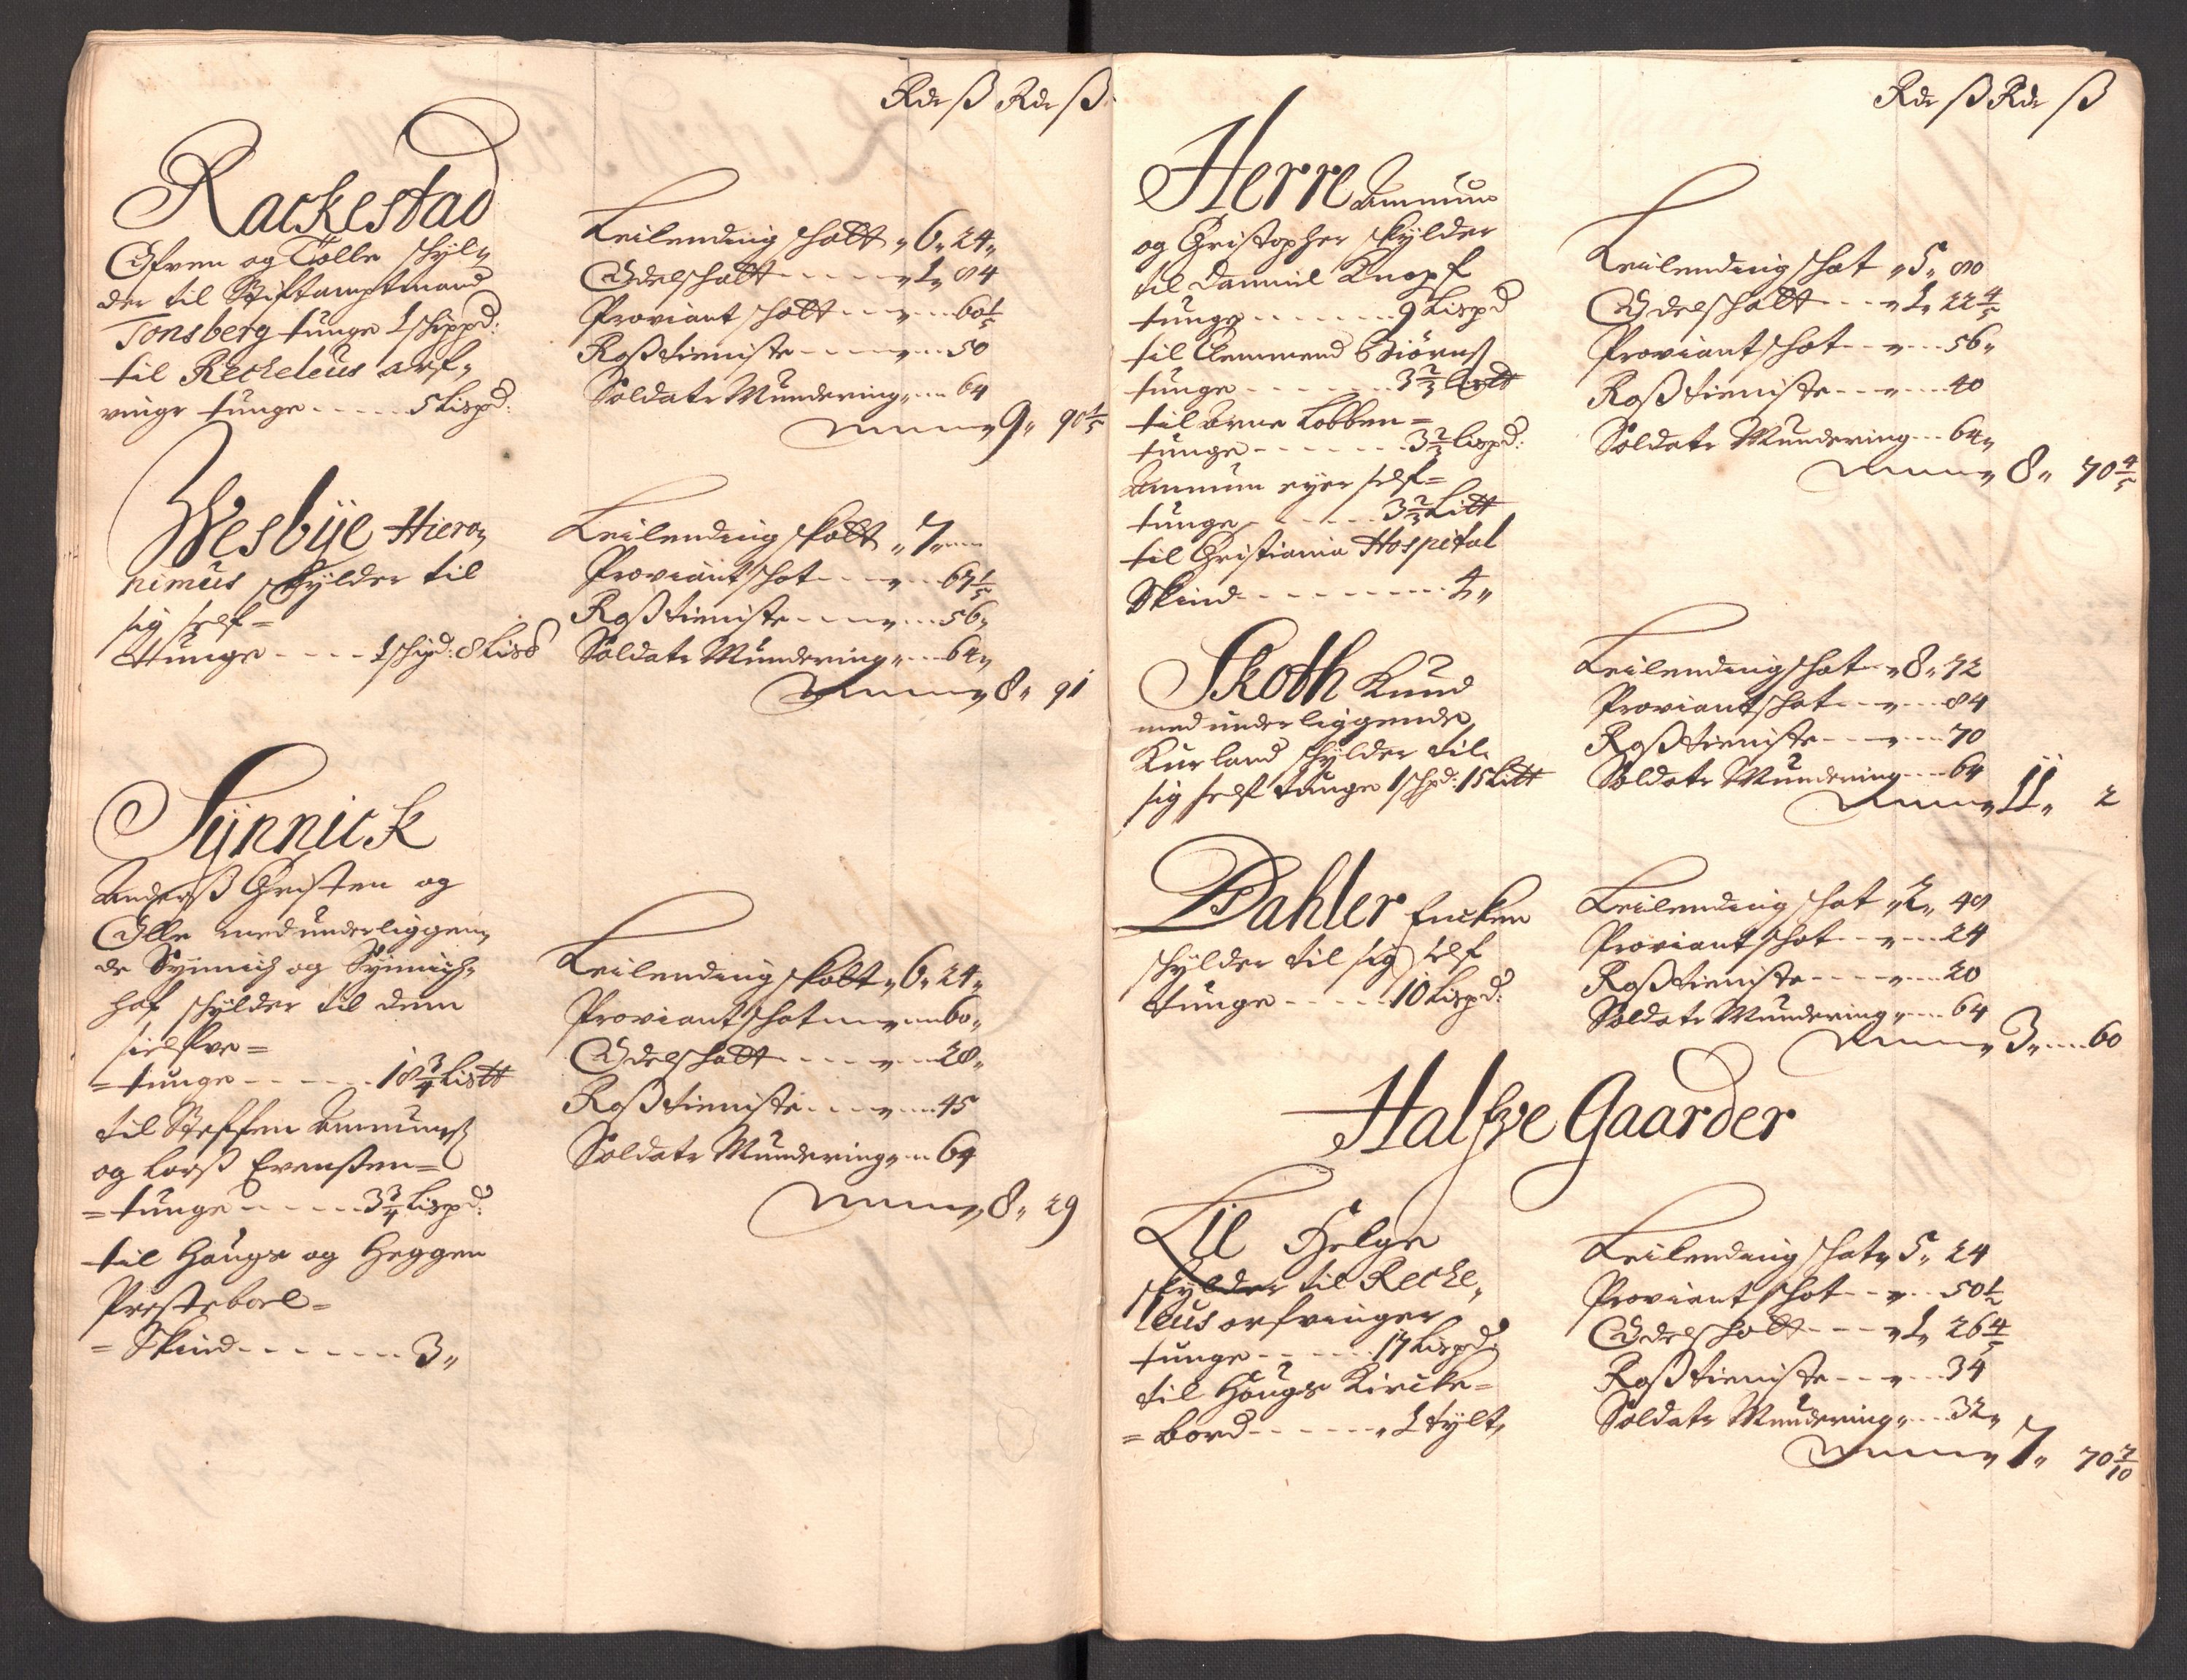 Rdr ß Rdr ß
Rackestad
Efven og Tolle skyl¬
der til Stiftamptmand
Tonsberg tunge 1 schippd:
til Recheleus arf¬
vinger tunge - - - - - 5 Lispd:
Leilending schatt „ 6 „ 24 „
Odelschatt - - - - „ 1 „ 84
Proviant schatt - - „ - - 60 1/5
Roßtieniste - - - - „ - - 50
Soldate Mundering „ - - 64
9 „ 90 1/5
Wesbÿe Hiero¬
nimus skylder til
sig self =
tunge - - - - 1 schpd: 8 Lis
Leilending skatt „ 7 „
Proviant schat - - - „ - - 67 1/5
Roßtieniste - - - „ - - 56 „
Soldate Mundering „ - - 64 „
8 „ 91
Sÿnnick
Anderß Christen og
Olle med underliggen¬
de Synnich og Synnich¬
hof schylder til dem
sielfve =
= tunge - - - - - 18 3/4 Lis
til Steffen Ammunds
og Larß Evensten =
= tunge - - - - - 3 3/4 Lispd:
til Haugs og Heggen
Presteboel =
= Skind - - - - - - - 3 „
Leilending skatt „ 6 „ 24 „
Proviant schat - - „ - - 60 „
Odelschatt - - - - „ - - 28 „
Roßtieniste - - - „ - - 45
Soldate Mundering „ - - 64
8 „ 29
Rdr ß Rdr ß
Herre Ammund
og Christopher skylder
til Dannil Knopf
tunge - - - - - - - 9 Lispd
til Clemmend Biörns
tunge - - - - - - 3 2/3 Lis
til Arne Lobben =
tunge - - - - - - 3 2/3 Lispd:
Ammun eyer self =
tunge - - - - - - 3 2/3 Li
til Christiania Hospital
Skind - - - - - - - - - 4 „
Leilending schat „ 5 „ 80
Odelschatt - - - „ 1 „ 22 4/5
Proviant schat - - „ - - 56 „
Roßtieniste - - - „ - - 40
Soldate Mundering - - 64 „
8 „ 70 4/5
Skoth Knud
med underliggende
Kurland schylder til
sig self tunge 1 schpd: 15 Li
Leilending schat - „ 8 „ 72
Proviant schat - - „ - - 84
Roßtieniste - - - „ - - 70
Soldate Mundering - - 64
11 „ 2
Dahler Encken
schylder til sig self
tunge - - - - - 10 Lispd:
Leilending schat „ 2 „ 48
Proviant schat - - „ - - 24
Roßtieniste - - - „ - - 20
Soldate Mundering „ - - 64
3 „ - - 60
Halfve Gaarder
Lil Helge
skylder til Reche¬
leus arfvinger
tunge - - - - - 17 Lispd:
til Haugs Kircke =
= bord - - - - - „ 1 tylt „
Leilending schat „ 5 „ 24
Proviant schat - - „ - - 50 1/2
Odelschatt - - - „ 1 „ 26 4/5
Roßtieniste - - „ - - 34
Soldate Mundering „ - - 32 „
7 „ 70 7/10